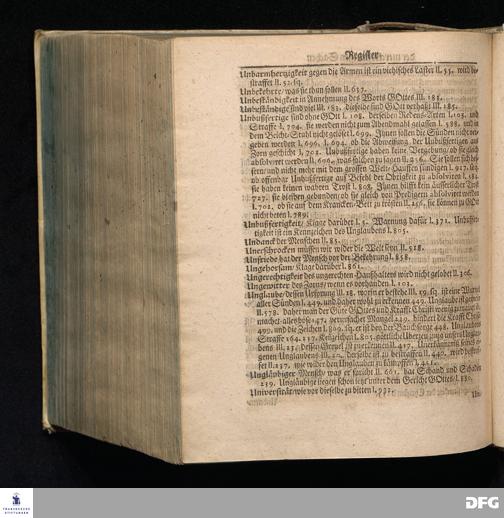 Register
Unbarmhertzigkeit gegen die Armen ist ein viehisches Laster II. 55. wird be-
straffet II. 52. sq.
Unbekehrte, was sie thun sollen II. 637.
Unbeständigkeit in Annehmung des Worts GOttes III. 185.
Unbeständige sind viel III. 183. dieselbe sind GOtt verhaßt III. 185.
Unbußfertige sind ohne GOtt I. 108. derselben Redens-Arten I. 103. und
Straffe I. 704. sie werden nicht zum Abendmahl gelassen I. 588. und in
dem Beicht-Stuhl nicht gelöset I. 699. Ihnen sollen die Sünden nicht ver-
geben werden I. 696. I. 694. ob die Abwehrung der Unbußfertigen aus
Zorn geschicht I. 703. Unbußfertige haben keine Vergebung, ob sie gleich
absolviret werden II. 606. was solchen zu sagen II. 256. Sie sollen sich bes-
sern, und nicht mehr mit dem grossen Welt-Hauffen sündigen I. 917. sq.
ob offenbar Unbußfertige auf Befehl der Obrigkeit zu absolviren I. 581.
sie haben keinen wahren Trost I. 808. Ihnen hilfft kein äusserlicher Trost
I. 727. sie bleiben gebunden, ob sie gleich von Predigern absolviret werden
I. 702. ob sie auf dem Krancken-Bett zu trösten II. 256. sie können zu GOtt
nicht beten I. 789.
Unbußfertigkeit, Klage darüber I. 5. Warnung dafür I. 371. Unbußfer-
tigkeit ist ein Kennzeichen des Unglaubens I. 805.
Undanck der Menschen II. 85.
Unerschrocken müssen wir wider die Welt seyn II. 518.
Unfriede hat der Mensch vor der Bekehrung I. 858.
Ungehorsam, Klage darüber I. 861.
Ungerechtigkeit des ungerechten Haußhalters wird nicht gelobet II. 306.
Ungewitter des Zorns, wenn es vorhanden I. 103.
Unglaube, dessen Ursprung II. 18. worin er bestehe III. 59. sq. ist eine Wurtzel
aller Sünden I. 449. und daher wohl zu erkennen 449. Unglaube ist gemein
II. 578. daher man der Güte GOttes und Krafft Christi wenig
machet alles 47. verursachet Mangel 249. hindert die Krafft Christi
499. und die Zeichen I. 809. sq. er ist vor der Bauchsorge 448. Unglaubens
Straffe 164. 237. Kenzeichen I. 805. göttliche Uberzeugung unsers Unglau-
bens III. 23. dessen Greuel ist zu erkennen II. 427. Unerkäntniß seines ei-
genen Unglaubens III. 20. derselbe ist zu bestraffen II. 440. wird bestraf-
fet II. 237. wie wider den Unglauben zu kämpffen I. 441.
Ungläubiger Mensch, was er spricht II. 661. hat Schand und Schaden
239. Ungläubige liegen schon ietzt unter dem Gericht GOttes I. 130.
Universität, wie vor dieselbe zu bitten I. 932.
Un-
FRANCKESCHE
STIFTUNGEN
DFG